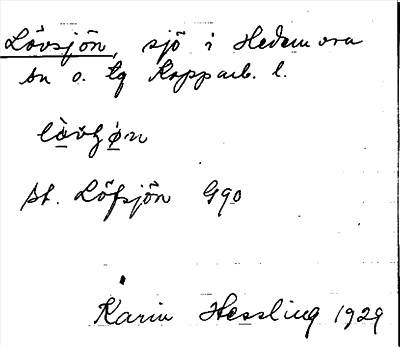 Lövsjön, sjö i Hedemora
sn o. tg Kopparb. l.
lòvʃø̀n
st. Löfsjön G90
Karin Hessling 1929